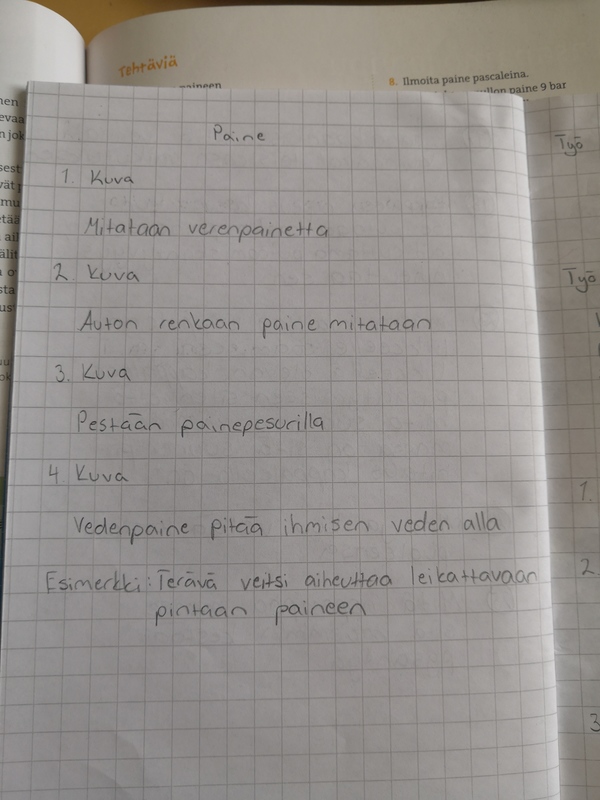 Tehtäviä
8. Ilmoita paine pascaleina.
paine 9 bar
Paine
1. Kuva
Mitataan verenpainetta
2. Kuva
Auton renkaan paine mitataan
3. Kuva
Pestään painepesurilla
4 Kuva
Vedenpaine pitää ihmisen veden alla
Esimerkki: Terävä veitsi aiheuttaa leikattavaan
pintaan paineen
Työ
Työ
1.
2.
3